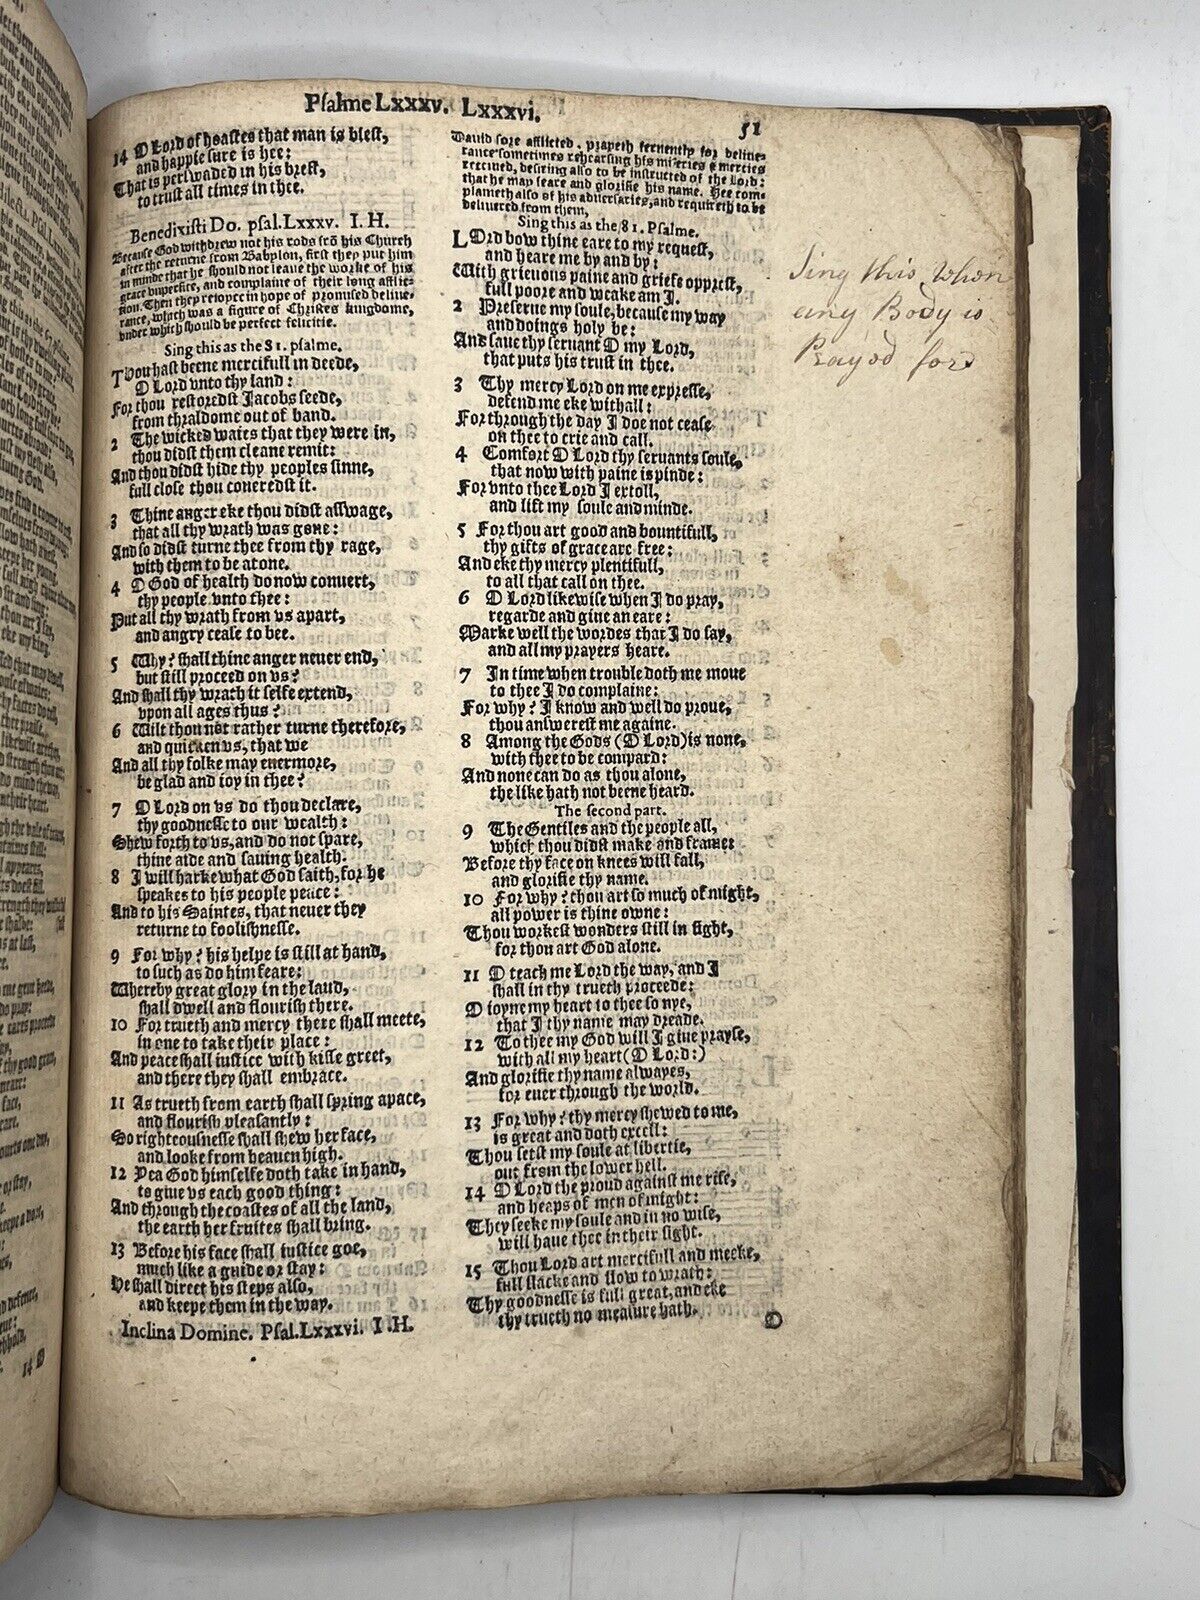 Psalme Lxxxv. Lxxxvi.
51
14 O Lord of hoastes that man is blest,
and happie sure is hee:
That is perswaded in his brest,
to trust all times in thee.
Benedixisti Do. psal. Lxxxv. I. H.
Because God withdrew not his rods frõ his Church
after the returne from Babylon, first they put him
in minde that he should not leaue the worke of his
grace vnperfice, and complaine of their long afflic-
tion. Then they reioyce in hope of promised deliue-
rance, which was a figure of Christes kingdome,
vnder which should be perfect felicitie.
Sing this as the 81. psalme.
Thou hast beene mercifull in deede,
O Lord vnto thy land:
For thou restoredst Jacobs seede,
from thraldome out of band.
2 The wicked waies that they were in,
thou didst them cleane remit:
And thou didst hide thy peoples sinne,
full close thou coueredst it.
3 Thine anger eke thou didst asswage,
that all thy wrath was gone:
And so didst turne thee from thy rage,
with them to be at one.
4 O God of health do now conuert,
thy people vnto thee:
Put all thy wrath from vs apart,
and angry cease to bee.
5 Why? shall thine anger neuer end,
but still proceed on vs?
And shall thy wrath it selfe extend,
vpon all ages thus?
6 Wilt thou not rather turne therefore,
and quicken vs, that we
And all thy folke may euermore,
be glad and ioy in thee?
7 O Lord on vs do thou declare,
thy goodnesse to our wealth:
Shew forth to vs, and do not spare,
thine aide and sauing health.
8 I will harke what God saith, for he
speakes to his people peace:
And to his Saintes, that neuer they
returne to foolishnesse.
9 For why? his helpe is still at hand,
to such as do him feare:
Whereby great glory in the land,
shall dwell and flourish there.
10 For trueth and mercy there shall meete,
in one to take their place:
And peace shall iustice with kisse greet,
and there they shall embrace.
11 As trueth from earth shall spring apace,
and flourish pleasantly:
So righteousnesse shall shew her face,
and looke from heauen high.
12 Yea God himselfe doth take in hand,
to giue vs each good thing:
And through the coastes of all the land,
the earth her fruites shall bring.
13 Before his face shall iustice goe,
much like a guide or stay:
He shall direct his steps also,
and keepe them in the way.
Inclina Domine. Psal. Lxxxvi. I. H.
Dauid sore afflicted, prayeth feruently for deliue-
rance sometimes rehearsing his miseries & mercies
receiued, desiring also to be instructed of the Lord:
that he may feare and glorifie his name. Hee com-
plaineth also of his aduersaries, and requireth to be
deliuered from them,
Sing this as the 81. Psalme.
LOrd bow thine eare to my request,
and heare me by and by:
With grieuous paine and griefe opprest,
full poore and weake am I.
2 Preserue my soule, because my way
and doings holy be:
And saue thy seruant O my Lord,
that puts his trust in thee.
3 Thy mercy Lord on me expresse,
defend me eke withall:
For through the day I doe not cease
on thee to crie and call.
4 Comfort O Lord thy seruants soule,
that now with paine is pinde:
For vnto thee Lord I extoll,
and lift my soule and minde.
5 For thou art good and bountifull,
thy gifts of grace are free:
And eke thy mercy plentifull,
to all that call on thee.
6 O Lord likewise when I do pray,
regarde and giue an eare:
Marke well the wordes that I do say,
and all my prayers heare.
7 In time when trouble doth me moue
to thee I do complaine:
For why? I know and well do proue,
thou answerest me againe.
8 Among the Gods (O Lord) is none,
with thee to be compard:
And none can do as thou alone,
the like hath not beene heard.
The second part.
9 The Gentiles and the people all,
which thou didst make and frame:
Before thy face on knees will fall,
and glorifie thy name.
10 For why? thou art so much of might,
all power is thine owne:
Thou workest wonders still in sight,
for thou art God alone.
11 O teach me Lord the way, and I
shall in thy trueth proceede:
O ioyne my heart to thee so nye,
that I thy name may dreade.
12 To thee my God will I giue prayse,
with all my heart (O Lord:)
And glorifie thy name alwayes,
for euer through the world.
13 For why? thy mercy shewed to me,
is great and doth excell:
Thou setst my soule at libertie,
out from the lower hell.
14 O Lord the proud against me rise,
and heaps of men of might:
They seeke my soule and in no wise,
will haue thee in their sight.
15 Thou Lord art mercifull and meeke,
full slacke and slow to wrath:
Thy goodnesse is full great, and eke
thy trueth no measure hath.
O
Sing this When
any Body is
Prayed for
14 O